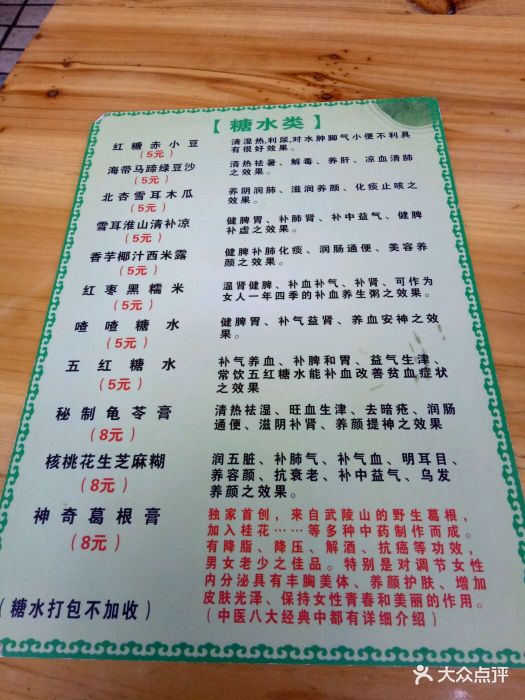 【糖水类】
红糖赤小豆
(5元)
清湿热,利尿,对水肿脚气小便不利具
有很好效果。
海带马蹄绿豆沙
(5元)
清热祛暑、解毒、养肝、凉血清肺
之效果。
北杏雪耳木瓜
(5元)
养阴润肺、滋润养颜、化痰止咳之
效果。
雪耳淮山清补凉
(5元)
健脾胃、补肺肾、补中益气、健脾
补虚之效果。
香芋椰汁西米露
(5元)
健脾补肺化痰、润肠通便、美容养
颜之效果。
红枣黑糯米
(5元)
温肾健脾、补血补气、补肾、可作为
女人一年四季的补血养生粥之效果。
喳喳糖水
(5元)
健脾胃、补气益肾、养血安神之效
果。
五红糖水
(5元)
补气养血、补脾和胃、益气生津、
常饮五红糖水能补血改善贫血症状
之效果
秘制龟苓膏
(8元)
清热祛湿、旺血生津、去暗疮、润肠
通便、滋阴补肾、养颜提神之效果
核桃花生芝麻糊
(8元)
润五脏、补肺气、补气血、明耳目、
养容颜、抗衰老、补中益气、乌发
养颜之效果。
神奇葛根膏
(8元)
独家首创，来自武陵山的野生葛根，
加入桂花……等多种中药制作而成。
有降脂、降压、解酒、抗癌等功效，
男女老少之佳品。特别是对调节女性
内分泌具有丰胸美体、养颜护肤、增加
皮肤光泽、保持女性青春和美丽的作用。
(中医八大经典中都有详细介绍)
(糖水打包不加收)
大众点评